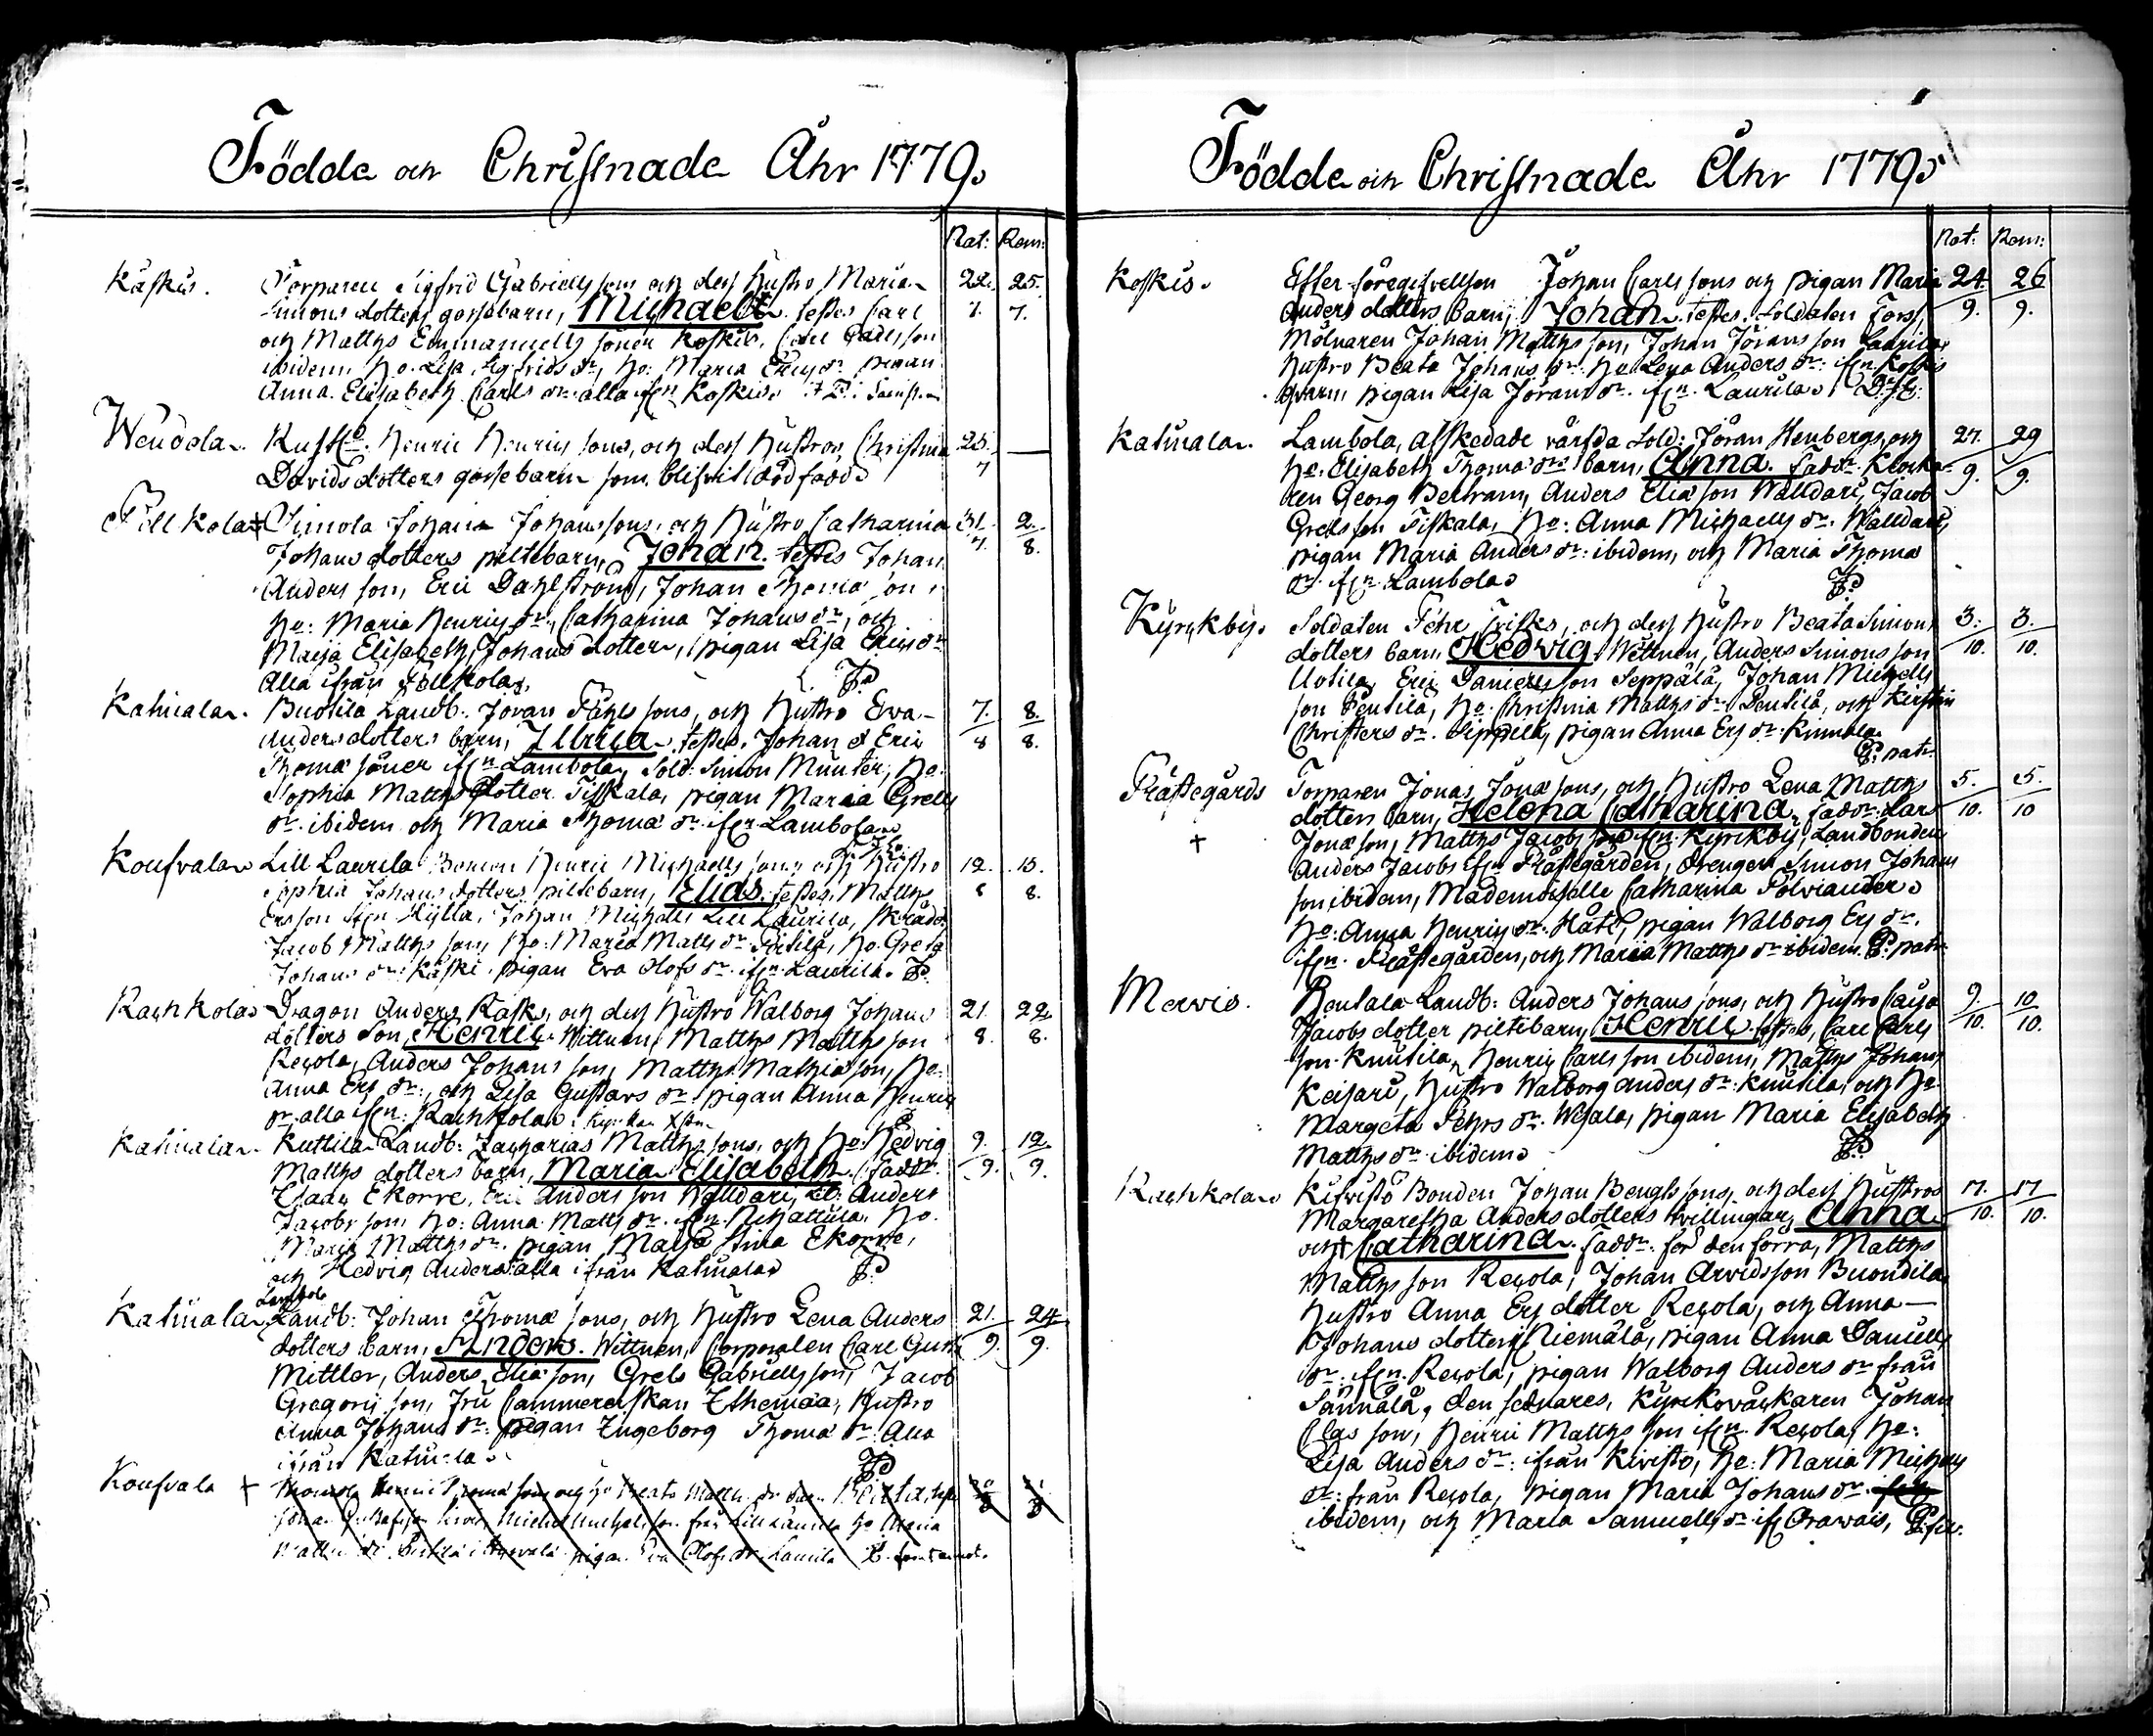 Födde och Christnade Åhr 1779.
Nat: Ren:
Kåskis. Torparen Sigfrid Gabriells sons och dess hustro Maria 22. 25.
Simons dotters gossebarn, Michaell. testes Carl 7. 7.
och Matths Emmanuells söner Koskis, Carl Carlsson
ibidem, ho. Lisa Sigfrids dr, ho: Maria Erics dr pigan
Anna Elisabeth Carls dr alla ifrn Koskis.
Wendela. Rusth. Henric Henrics sons, och dess hustros Christina 25. —
Davids dotters gossebarn som blifvit dödfödd 7
Johan Johans sons och hustro Catharina 31. 2.
Johans dotters piltebarn, Johan. testes Johan 7. 8.
Anders son, Eric Dahlström, Johan Thomæ son
ho: Maria Henrics dr, Catharina Johans dr, och
Maija Elisabeth Johans dotter, pigan Lisa Erics dr
Alla ifrån
Katuala. Buotila Landb: Jöran Påhls sons, och hustro Ewa 7. 8.
Anders dotters barn, Ulrica. testes. Johan & Eric 8 8.
Thomæ söner ifrn Lambola, Sold: Simon Munter, ho.
Sophia Matths dotter Tiskala, pigan Maria Grells
dr. ibidem och Maria Thomæ dr. ifrn Lambola
Koufvala Lill Laurila Bonden Henric Michaells sons och hustro 12. 15.
Sophia Johans dotters piltebarn, Elias. testes, Matths 8 8.
Ersson ifrn Hylla, Johan Michells Lill Laurila,
Jacob Matths son, ho: Maria Matts dr ho. Greta
Johans dr: Kåski, pigan Eva Olofs dr. ifrn Laurila.
Rachkola Dragon Anders Rask, och dess hustro Walborg Johans 21. 22.
dotters Son, Henric. Wittnen, Matths Matths son 8. 8.
Recola, Anders Johans son, Matths Mathiæ son, ho:
Anna Ers dr:, och Lisa Gustavs dr. pigan Anna Henrics
dr. alla ifrn. Rachkola
Katuala. Kuttila Landb: Zacharias Matths sons, och ho: Hedvig 9. 12.
Matths dotters barn, Maria Elisabeth. fadd. 9. 9.
Ekorre, Eric Anders son Walldari, Anders
Jacobs son, ho: Anna Matts dr. ifrn ho.
Maria Matths dr. pigan Maija Stina Ekorre,
och Hedvig Anders alla ifrån Katuala
Lambola
Katuala Landb: Johan Thomæ sons, och hustro Lena Anders 21. 24.
dotters barn, Anders. Wittnen, Corporalen Carl Gust. 9. 9.
Mittler, Anders Eliæ son, Grels Gabriells son, Jacob
Gregorii son, fru Cammererskan Ithemæa, hustro
Anna Johans dr: pigan Ingeborg Thomæ dr. Alla
ifrån Katuala.
Koufvala + Henric Thomæ son och ho Beata Matth. dr barn
Johan Gustafsson Michel Michels son från Lill Laurila ho Maria
pigan Eva Olofs dr. Laurila
Födde och Christnade Åhr 1779.
Nat: Ren:
Koskis. Johan Carls sons och pigan Maria 24. 26
Anders dotters barn, Johan. testes. Soldaten Fors, 9. 9.
Mölnaren Johan Matths son, Johan Jörans son Laurila,
hustro Beata Johans dr. ho: Lena Anders dr: ifrn. Koskis
qvarn, pigan Lisa Jörans dr. ifrn. Laurila.
Katuala. Lambola, afskedade värfda Sold: Jöran Henbergs, och 27. 29
ho: Elisabeth Thomæ drs barn, Anna. fadd. Klocka- 9. 9.
ren Georg Bertram, Anders Eliæ son Walldari, Jacob
Grels son Tiskala, ho: Anna Michaells dr. Walldari,
pigan Maria Anders dr: ibidem, och Maria Thomæ
dr. ifrn. Lambola
Kyrckby. Soldaten Pehr Frisks, och dess hustro Beata Simons 3. 3.
dotters barn, Hedvig. Wittnen, Anders Simons son 10. 10.
Uotila, Eric Daniels son Seppälä, Johan Michells
son Pentilä, ho. Christina Matths dr Pentilä, och Kirstin
Christers dr. pigan Anna Ers dr. Kinnala
Præstegårds Torparen Jonas Jonæ sons, och hustro Lena Matths 5. 5.
dotters barn, Helena Catharina. fadd. Lars 10. 10
+ Jonæ son, Matths Jacobs son ifrn. Kyrckby, Landbonden
Anders Jacobs ifrn Præstegården, drengen Simon Johans
son ibidem, Mademoiselle Catharina Polviander.
ho: Anna Henrics dr. pigan Walborg Ers dr.
ifrn. Præstegården, och Maria Matths dr ibidem.
Mervis. Rentala Landb: Anders Johans sons, och hustro Caisa 9. 10
Jacobs dotter piltebarn, Henric. testes, Carl Carls 10. 10.
son Knutila, Henric Carls son ibidem, Matths Johans
Keisari, hustro Walborg Anders dr: Knutila, och ho
Margeta Pehrs dr. Wesala, pigan Maria Elisabeth
Matths dr. ibidem.
Rachkola. Kivistö Bonden Johan Bengts sons, och dess hustros 17. 17
Margaretha Anders dotters tvillingar, Anna 10. 10.
och + Catharina. fadd. för den förra, Matths
Matths son Recola, Johan Arvidsson Buondila
hustro Anna Ers dotter Recola, och Anna —
Johans dotter Niemälä, pigan Anna Daniells
dr: ifrn. Recola, pigan Walborg Anders dr från
Sännälä, den sednares, Kyrckoväcktaren Johan
Clas son, Henric Matths son ifrn. Recola, ho:
Lisa Anders dr: ifrån Kivistö, ho: Maria Michells
dr: från Recola, pigan Maria Johans dr.
ibidem, och Maria Samuells dr. ifrn Orawais,